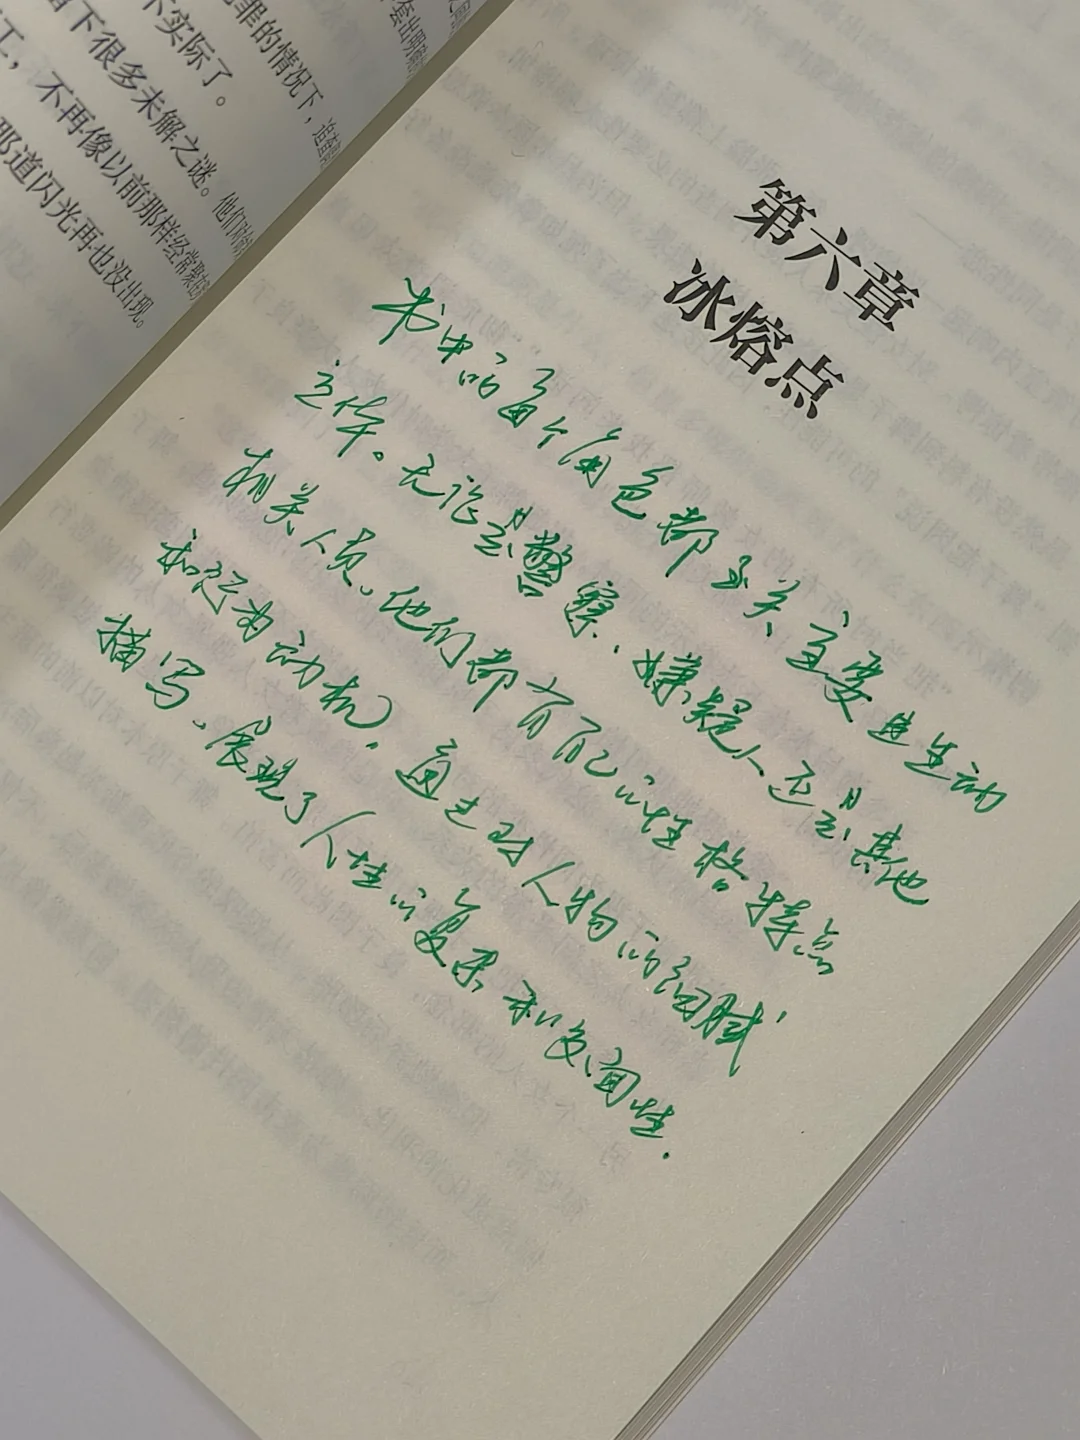 罪的情况下，追
不实际了。
留下很多未解之谜。他们
江，不再像以前那样经常聚
那道闪光再也没出现。
第六章
冰熔点
书中的每个角色都至关重要且生动
立体。无论是警察、嫌疑人还是其他
相关人员，他们都有自己的性格特点
和行为动机。通过对人物的细腻
描写，展现了人性的复杂和多面性.